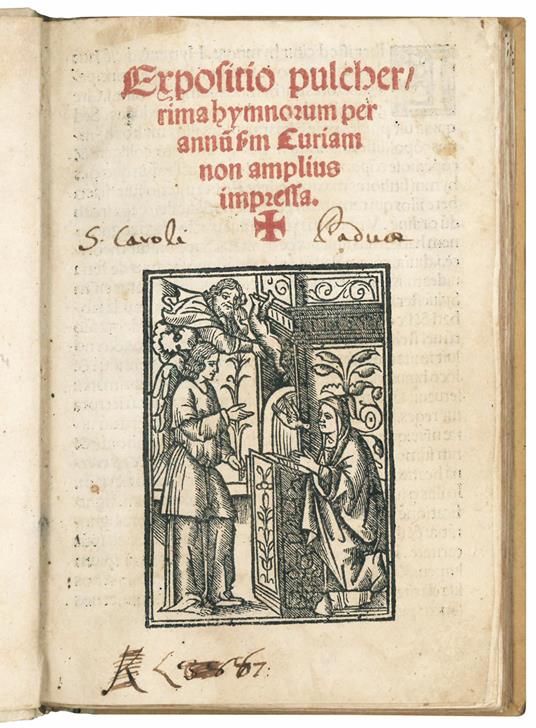 Expositio pulcher/
rima hymnorum per
annū ẜm Curiam
non amplius
impressa.
S. Caroli Paduæ